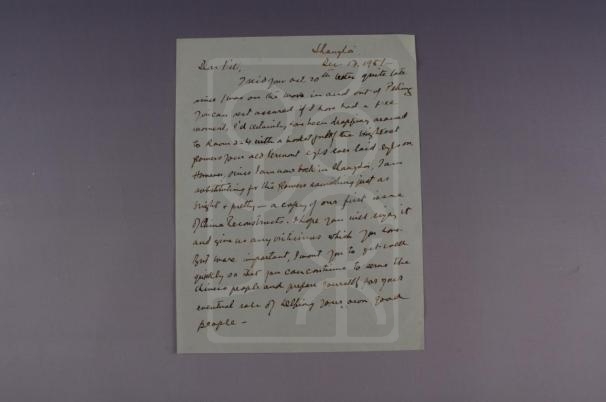 Shanghai
Dec 17, 1951 –
Dear
I rec'd your Oct. 20th letter quite late
since I was on the move in and out of Peking
You can rest assured if I have had a free
moment, I'd certainly have been dropping around
to Room with a basket full of the brightest
flowers your old Vermont eyes ever laid eyes on
However, since I am now back in Shanghai, I am
substituting for the flowers something just as
bright & pretty – a copy of our first issue
of China Reconstructs. I hope you will enjoy it
and give us any criticisms which you have.
But more important, I want you to get well
quickly so that you can continue to serve the
Chinese people and prepare yourself for your
eventual role of helping your own good
people –